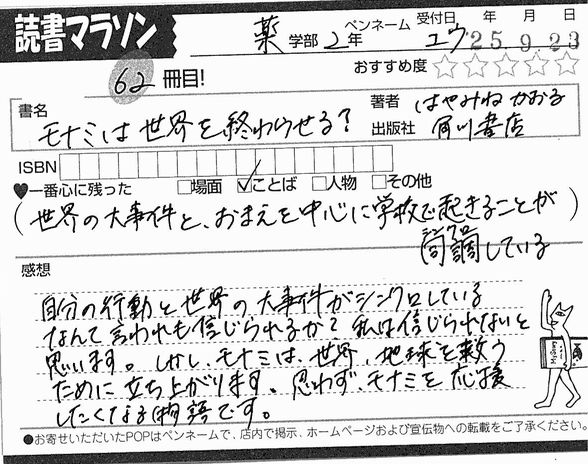 読書マラソン
薬 学部 2年 ペンネーム ユウ 受付日 年 月 日
25.9.23
62 冊目! おすすめ度 ☆☆☆☆☆
書名 モナミは世界を終わらせる? 著者 はやみね かおる
出版社 角川書店
ISBN
♥一番心に残った □場面 ☑ことば □人物 □その他
(世界の大事件と、おまえを中心に学校で起きることが
同調している)
シンクロ
感想
自分の行動と世界の大事件がシンクロしている
なんて言われても信じられるか? 私は信じられないと
思います。しかし、モナミは、世界、地球を救う
ために立ち上がります。思わず、モナミを応援
したくなる物語です。
●お寄せいただいたPOPはペンネームで、店内で掲示、ホームページおよび宣伝物への転載をご了承ください。